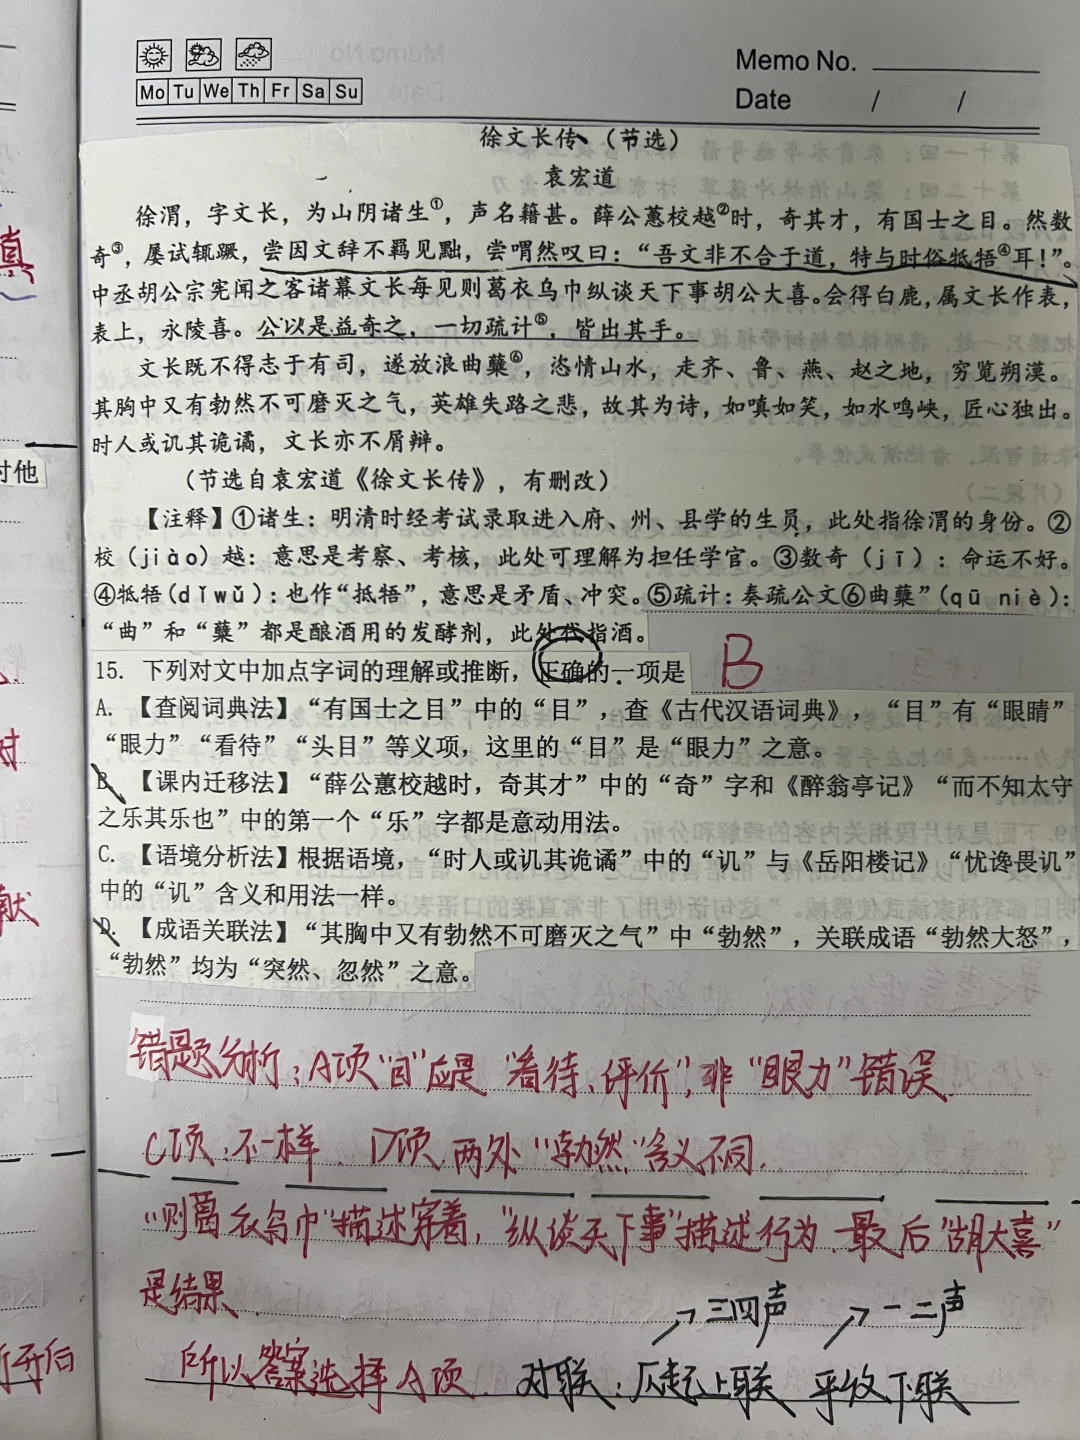 Memo No.
Mo Tu We Th Fr Sa Su
Date / /
徐文长传、（节选）
袁宏道
徐渭，字文长，为山阴诸生①，声名籍甚。薛公蕙校越②时，奇其才，有国士之目。然数
奇③，屡试辄蹶，尝因文辞不羁见黜，尝喟然叹曰：“吾文非不合于道，特与时俗牴牾④耳！”。
中丞胡公宗宪闻之客诸幕文长每见则葛衣乌巾纵谈天下事胡公大喜。会得白鹿，属文长作表，
表上，永陵喜。公以是益奇之，一切疏计⑤，皆出其手。
文长既不得志于有司，遂放浪曲蘖⑥，恣情山水，走齐、鲁、燕、赵之地，穷览朔漠。
其胸中又有勃然不可磨灭之气，英雄失路之悲，故其为诗，如嗔如笑，如水鸣峡，匠心独出。
时人或讥其诡谲，文长亦不屑辩。
（节选自袁宏道《徐文长传》，有删改）
【注释】①诸生：明清时经考试录取进入府、州、县学的生员，此处指徐渭的身份。②
校（jiào）越：意思是考察、考核，此处可理解为担任学官。③数奇（jī）：命运不好。
④牴牾（dǐwǔ）：也作“抵牾”，意思是矛盾、冲突。⑤疏计：奏疏公文⑥曲蘖”（qū niè）：
“曲”和“蘖”都是酿酒用的发酵剂，此处代指酒。
15. 下列对文中加点字词的理解或推断，正确的一项是 B
A. 【查阅词典法】“有国士之目”中的“目”，查《古代汉语词典》，“目”有“眼睛”
“眼力”“看待”“头目”等义项，这里的“目”是“眼力”之意。
B. 【课内迁移法】“薛公蕙校越时，奇其才”中的“奇”字和《醉翁亭记》“而不知太守
之乐其乐也”中的第一个“乐”字都是意动用法。
C. 【语境分析法】根据语境，“时人或讥其诡谲”中的“讥”与《岳阳楼记》“忧谗畏讥”
中的“讥”含义和用法一样。
D. 【成语关联法】“其胸中又有勃然不可磨灭之气”中“勃然”，关联成语“勃然大怒”，
“勃然”均为“突然、忽然”之意。
错题分析：A项“目”应是“看待、评价”，非“眼力”错误
C项：不一样. D项 两处“勃然”含义不同.
“则葛衣乌巾”描述穿着，“纵谈天下事”描述行为.最后“胡大喜”
是结果.
三四声 一二声
所以答案选择A项. 对联：仄起上联 平收下联
时他
真
对
献
开后